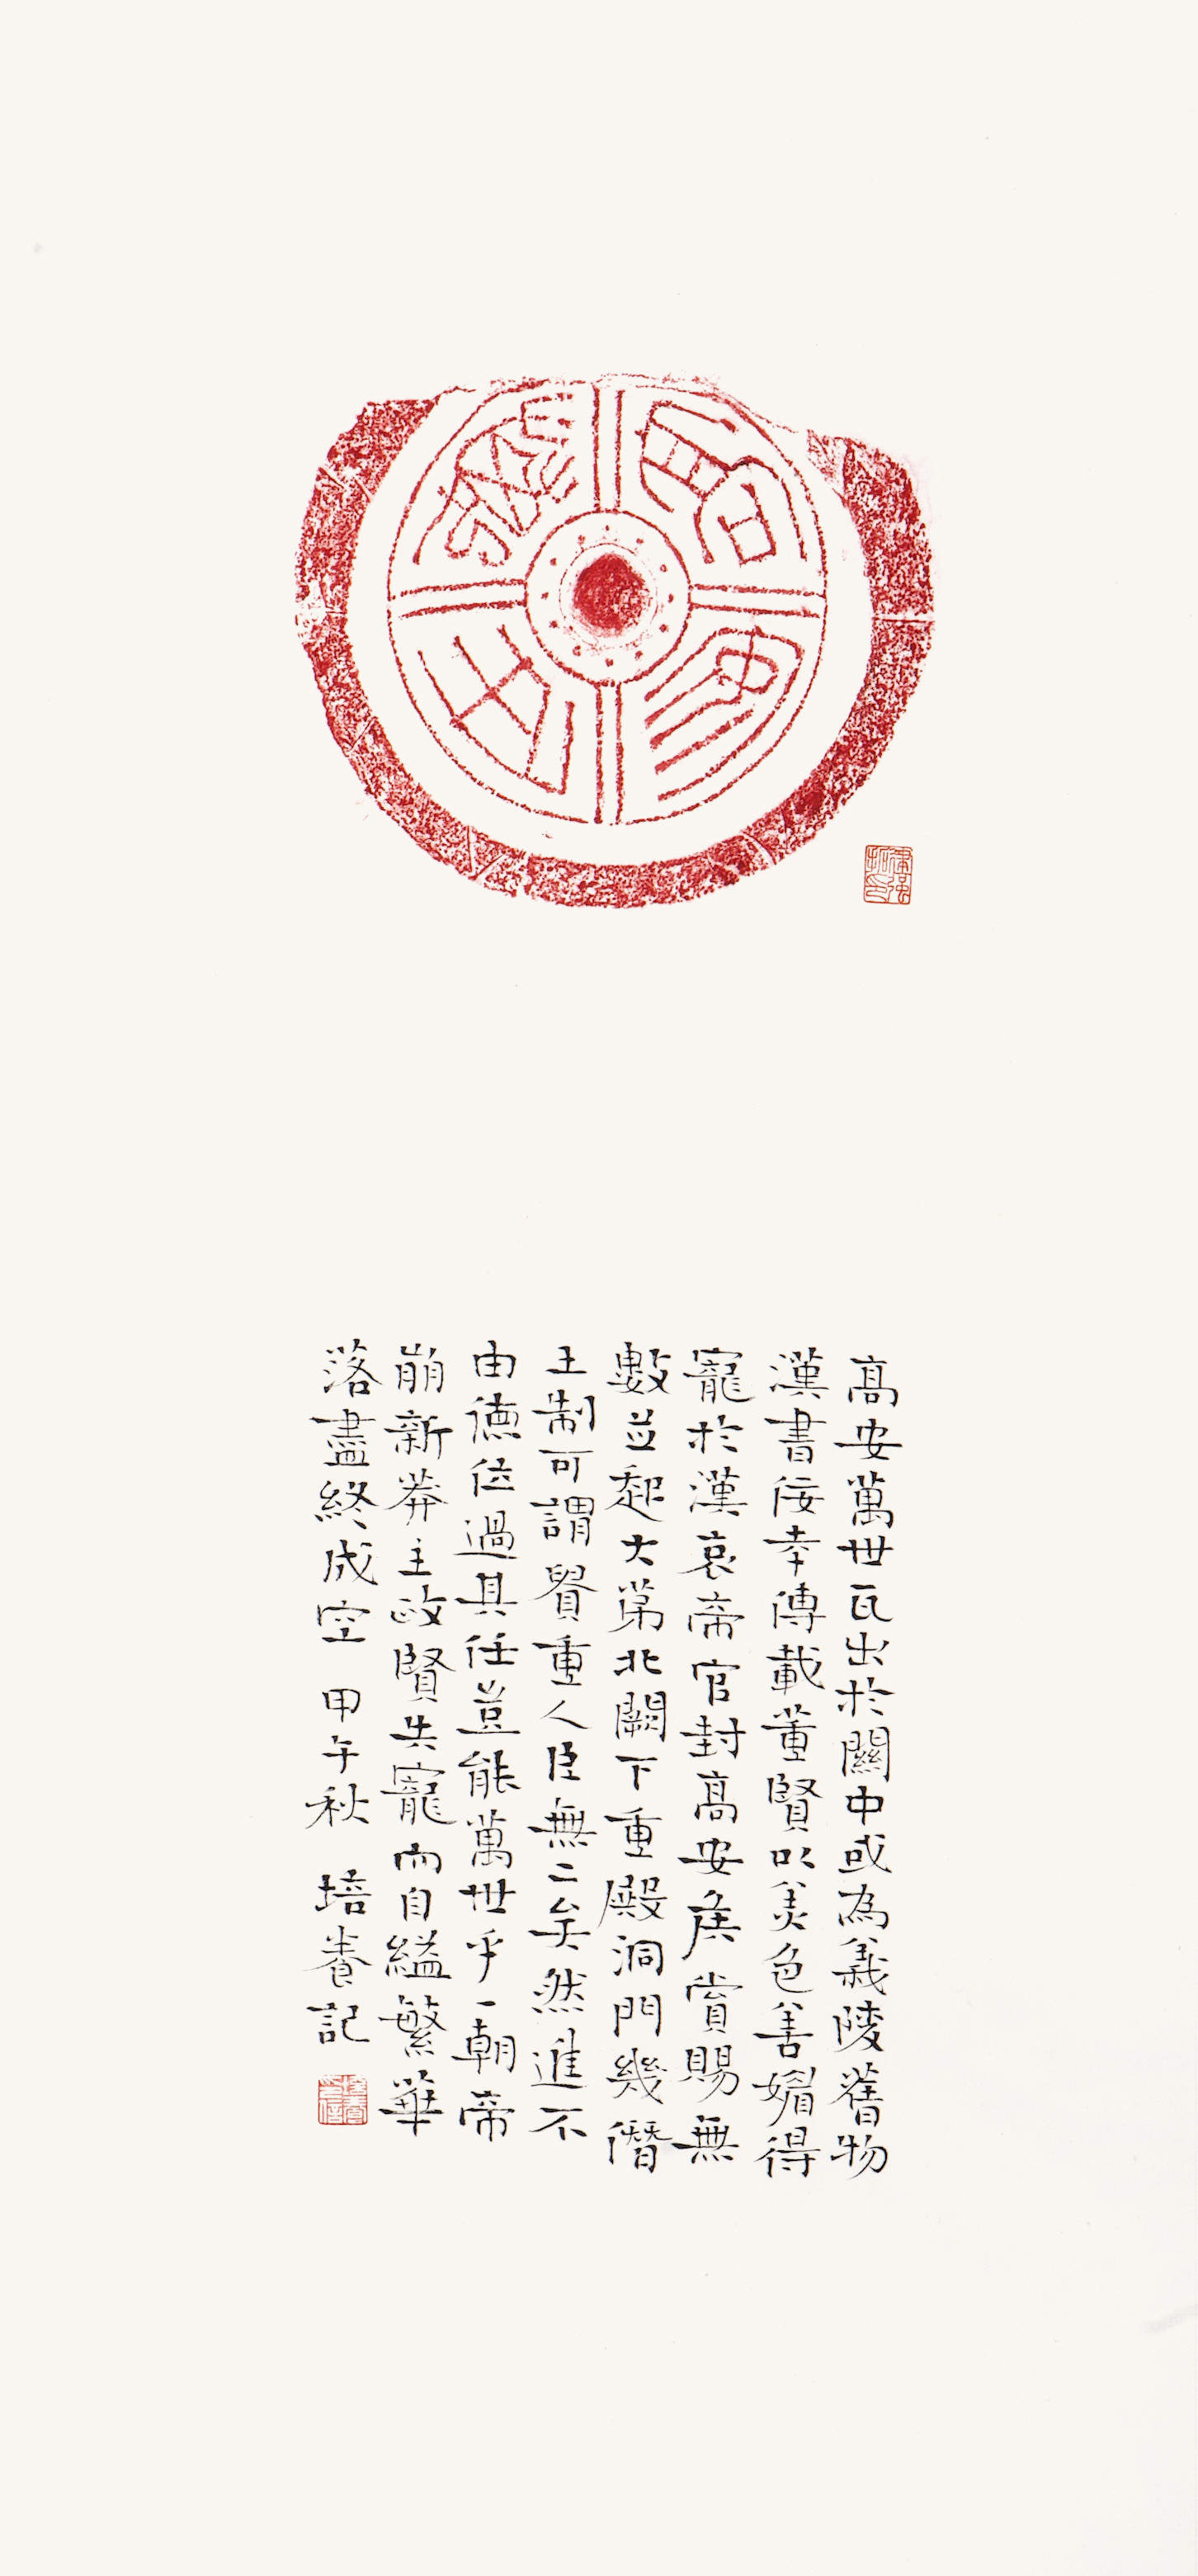 高安萬世
高安萬世瓦出於關中或為義陵舊物
漢書佞幸傳載董賢以美色善媚得
寵於漢哀帝官封高安侯賞賜無
數並起大第北闕下重殿洞門幾僭
王制可謂貴重人臣無二矣然進不
由德位過其任豈能萬世乎一朝帝
崩新莽主政賢失寵而自縊繁華
落盡終成空 甲午秋 培養記